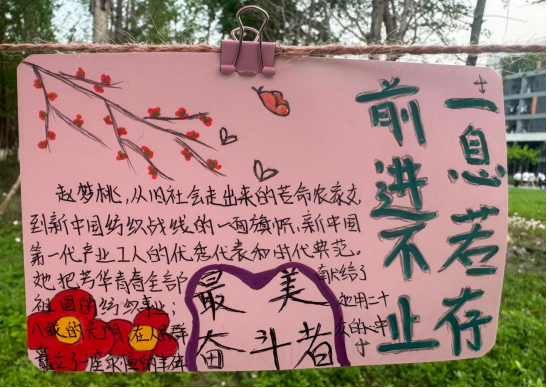 一息若存
前进不止
赵梦桃，从旧社会走出来的苦命农家女
到新中国纺织战线的一面旗帜，新中国
第一代产业工人的优秀代表和时代典范。
她把芳华青春全部 献给了
祖国的纺织事业， 她用二十
八载的光阴，在人群
最美
奋斗者